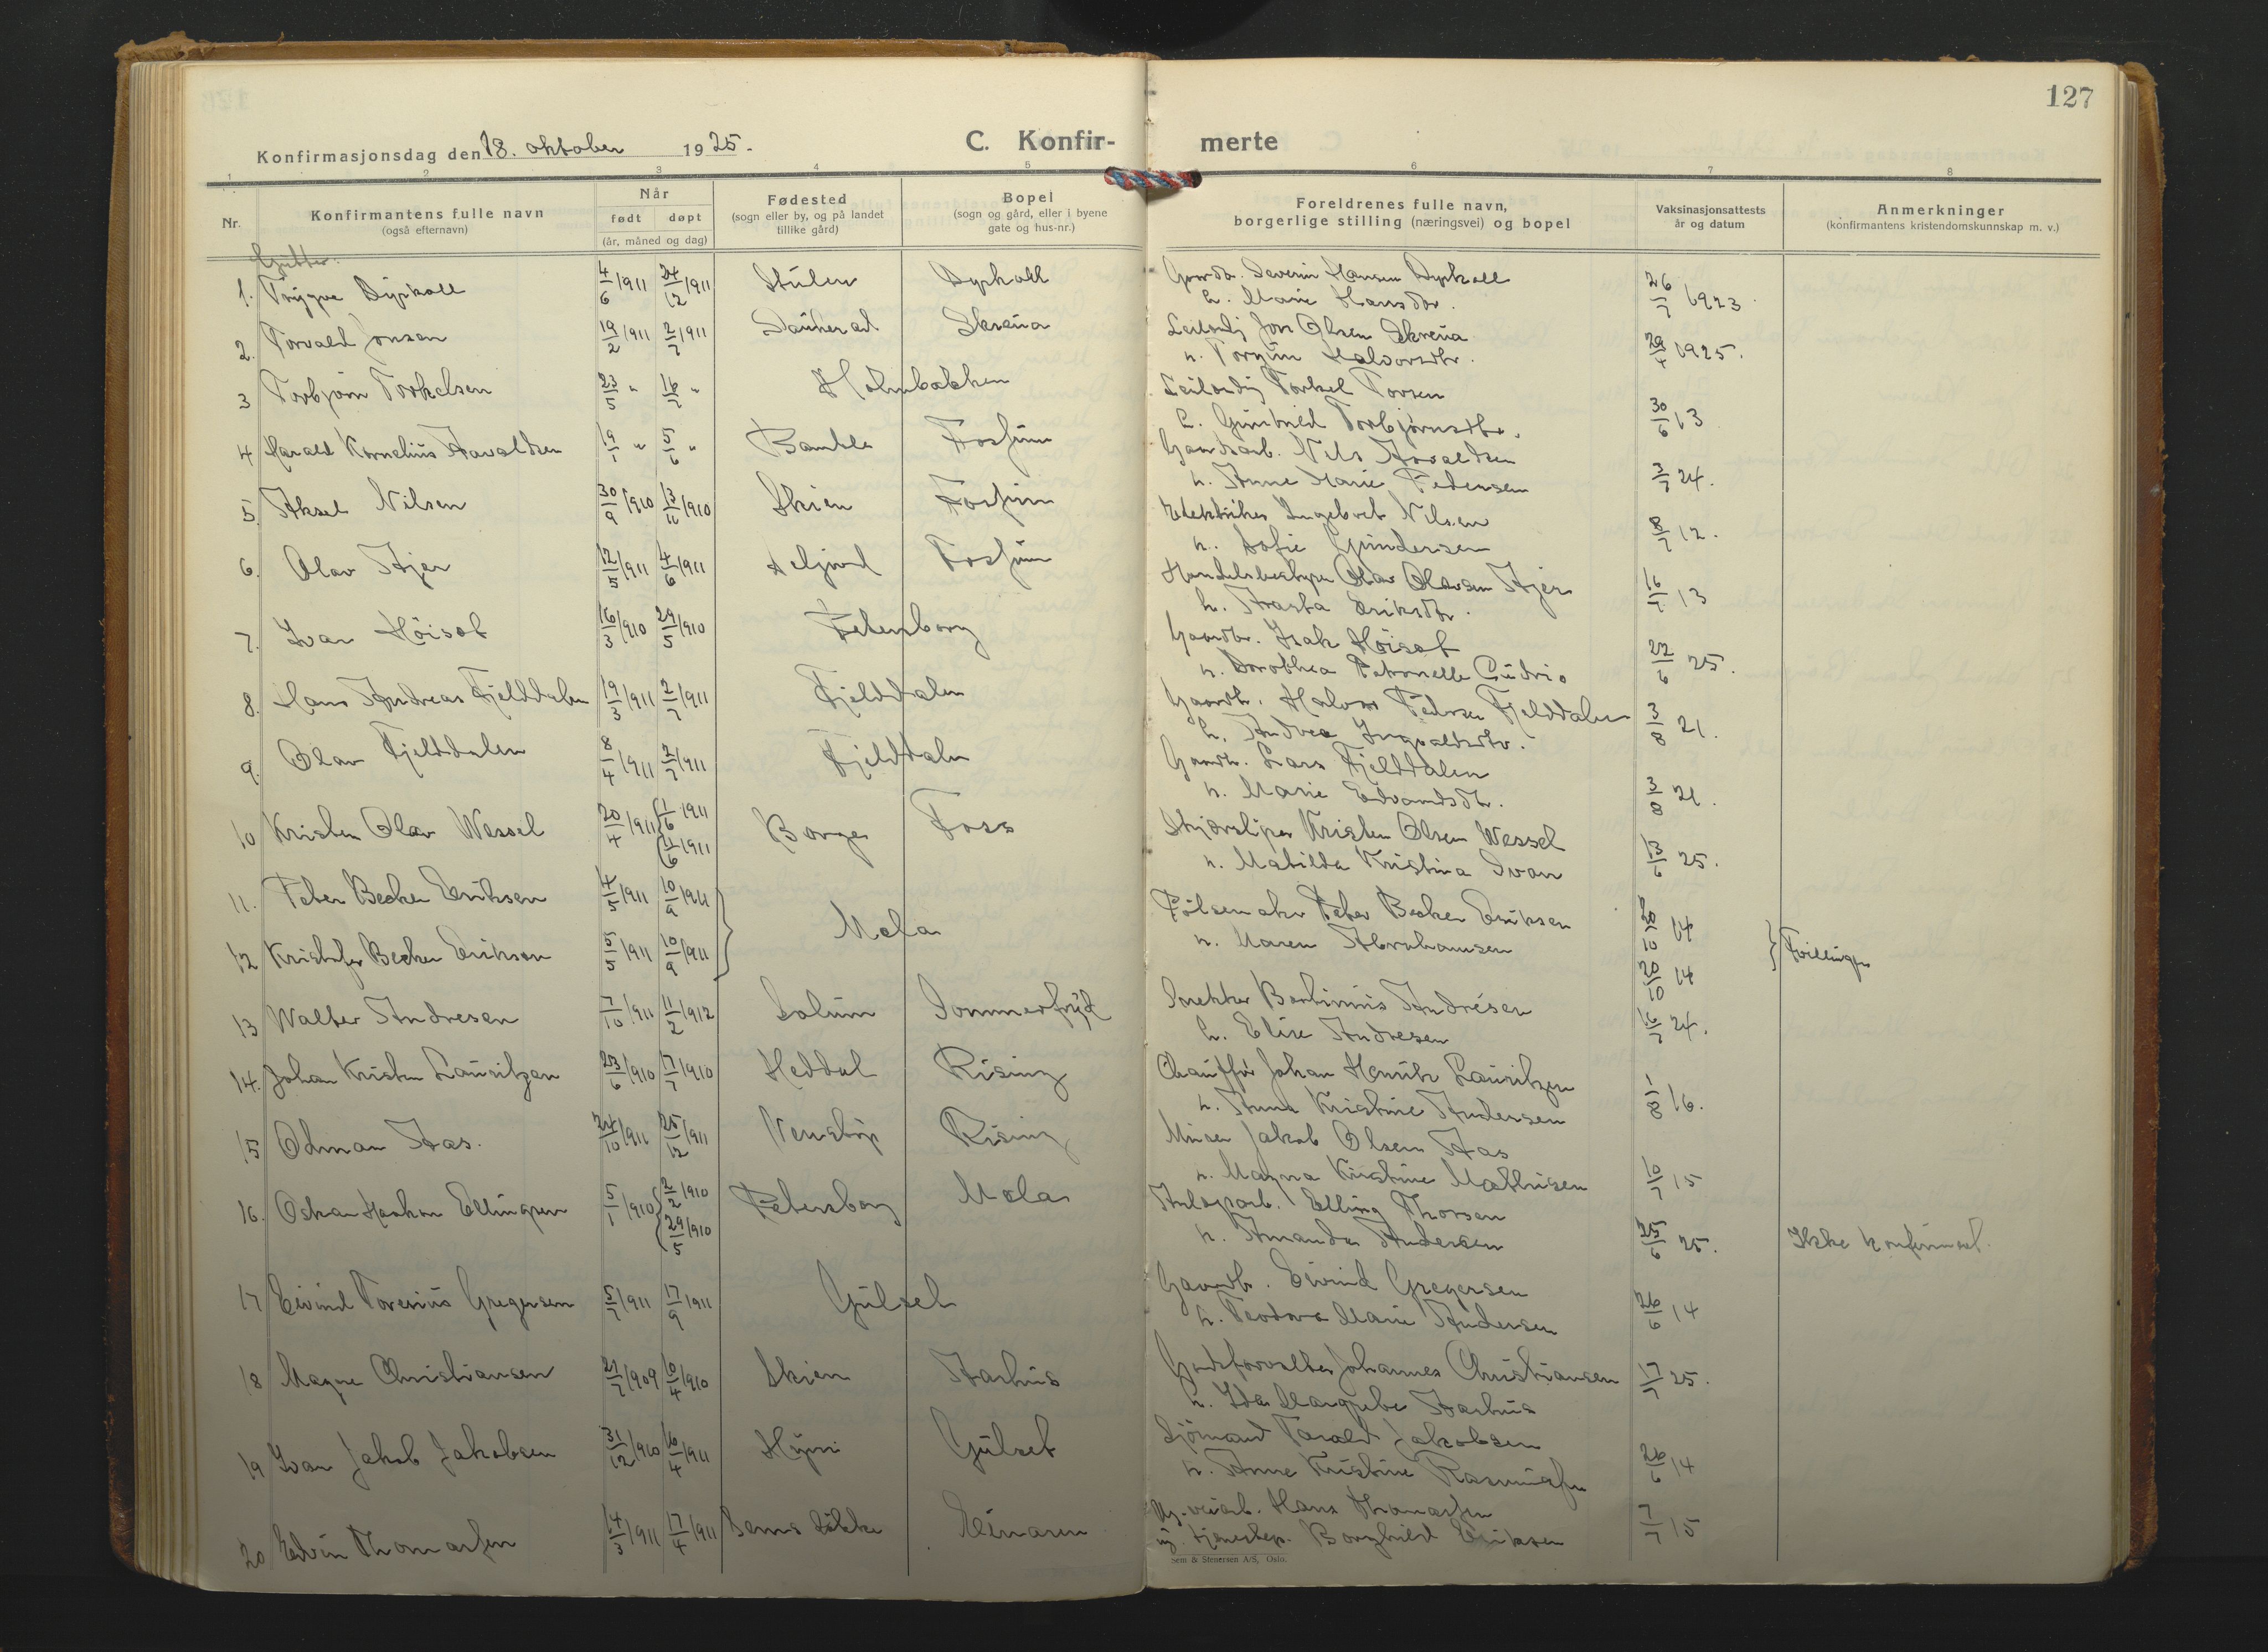 127
Konfirmasjonsdag den 18. oktober 1925.
C. Konfir- merte
1 2 3 4 5 6 7 8
Nr.
Konfirmantens fulle navn
(også efternavn)
Når
født døpt
(år, måned og dag)
Fødested
(sogn eller by, og på landet
tillike gård)
Bopel
(sogn og gård, eller i byene
gate og hus-nr.)
Foreldrenes fulle navn,
borgerlige stilling (næringsvei) og bopel
Vaksinasjonsattests
år og datum
Anmerkninger
(konfirmantens kristendomskunnskap m. v.)
Gutter.
1. Trygve Dypkall 4/6 1911 24/12 1911 Stulen Dypkall Gaardb. Severin Hansen Dypkall
h. Marie Hansdtr. 26/7 1923
2. Torvald Jonsen 19/2 1911 2/7 1911 Sauherad Skreua Leilendg Jon Olsen Skreua
h. Torgun Halvorsdtr. 29/4 1925.
3 Torbjørn Torkelsen 23/5 " 16/7 " Holmbakken Leilendg Torkel Torsen
h. Gunhild Torbjørnsdtr. 30/6 13
4 Harald Kornelius Aavaldsen 19/1 " 5/6 " Bamble Fossum Gaardsarb. Nils Aavaldsen
h. Anne Marie Pedersen 3/7 24.
5. Aksel Nilsen 30/9 1910 13/11 1910 Skien Fossum Elektriker Ingebret Nilsen
h. Sofie Gundersen 8/7 12.
6. Olav Kjær 12/5 1911 4/6 1911 Seljord Fossum Handelsbestyrer Olav Olavsen Kjær
h. Aasta Eriksdtr. 16/7 13
7. Ivar Høisæt 16/3 1910 29/5 1910 Petersborg Gaardbr. Isak Høisæt
h. Dorothea Petronelle Gudrio 22/6 25.
8. Hans Andreas Fjelddalen 19/3 1911 2/7 1911 Fjelddalen Gaardb. Halvor Pedersen Fjelddalen
h. Andrea Ingvaldsdtr. 3/8 21.
9. Olav Fjelddalen 8/4 1911 2/7 1911 Fjelddalen Gaardb. Lars Fjelddalen
h. Marie Edvardsdtr. 3/8 21.
10 Kristen Olav Wessel 20/4 1911 1/6 1911 11/6 1911 Borge Foss Skjærsliper Kristen Olsen Wessel
h. Matilda Kristina Ivan 13/6 25.
11. Peter Becker Eriksen 4/5 1911 10/9 1911 Mæla Pølsemaker Peter Becker Eriksen
h. Maren Abrahamsen 20/10 14
12 Kristofer Becker Eriksen 5/5 1911 10/9 1911 20/10 14 Tvillinger
13 Walter Andresen 7/10 1911 11/2 1912 Solum Sommerfryd Snekker Bertinius Andresen
h. Elise Andresen 16/7 24.
14. Johan Kristen Lauritzen 23/6 1910 17/7 1910 Heddal Rising Chauffør Johan Henrik Lauritzen
h. Anna Kristine Andersen 1/8 16.
15 Odmar Aas. 24/10 1911 25/12 1911 Venstøp Rising Murer Jakob Olsen Aas
h. Magna Kristine Mathisen 10/7 15
16. Oskar Haakon Ellingsen 5/1 1910 2/2 1910 29/5 1910 Petersborg Mæla Elling Thorsen
h. Amanda Andersen 25/6 25. Ikke konfirmert.
17 Eivind Torenius Gregersen 5/7 1911 17/9 1911 Gulset Gaardb. Eivind Gregersen
h. Teodora Marie Andersen 26/6 14
18 Magne Christiansen 21/7 1909 10/4 1910 Skien Aarhus Godsforvalter Johannes Christiansen
h. Ida Margrethe Aarhus 17/7 25.
19 Ivar Jakob Jakobsen 31/12 1910 16/4 1911 Gulset Sjømand Tarald Jakobsen
h. Anne Kristine Rasmussen 26/6 14
20 Edvin Thomassen 14/3 1911 17/4 1911 Hans Thomassen
Borghild Eriksen 7/7 15
Sem & Stenersen A/S, Oslo.